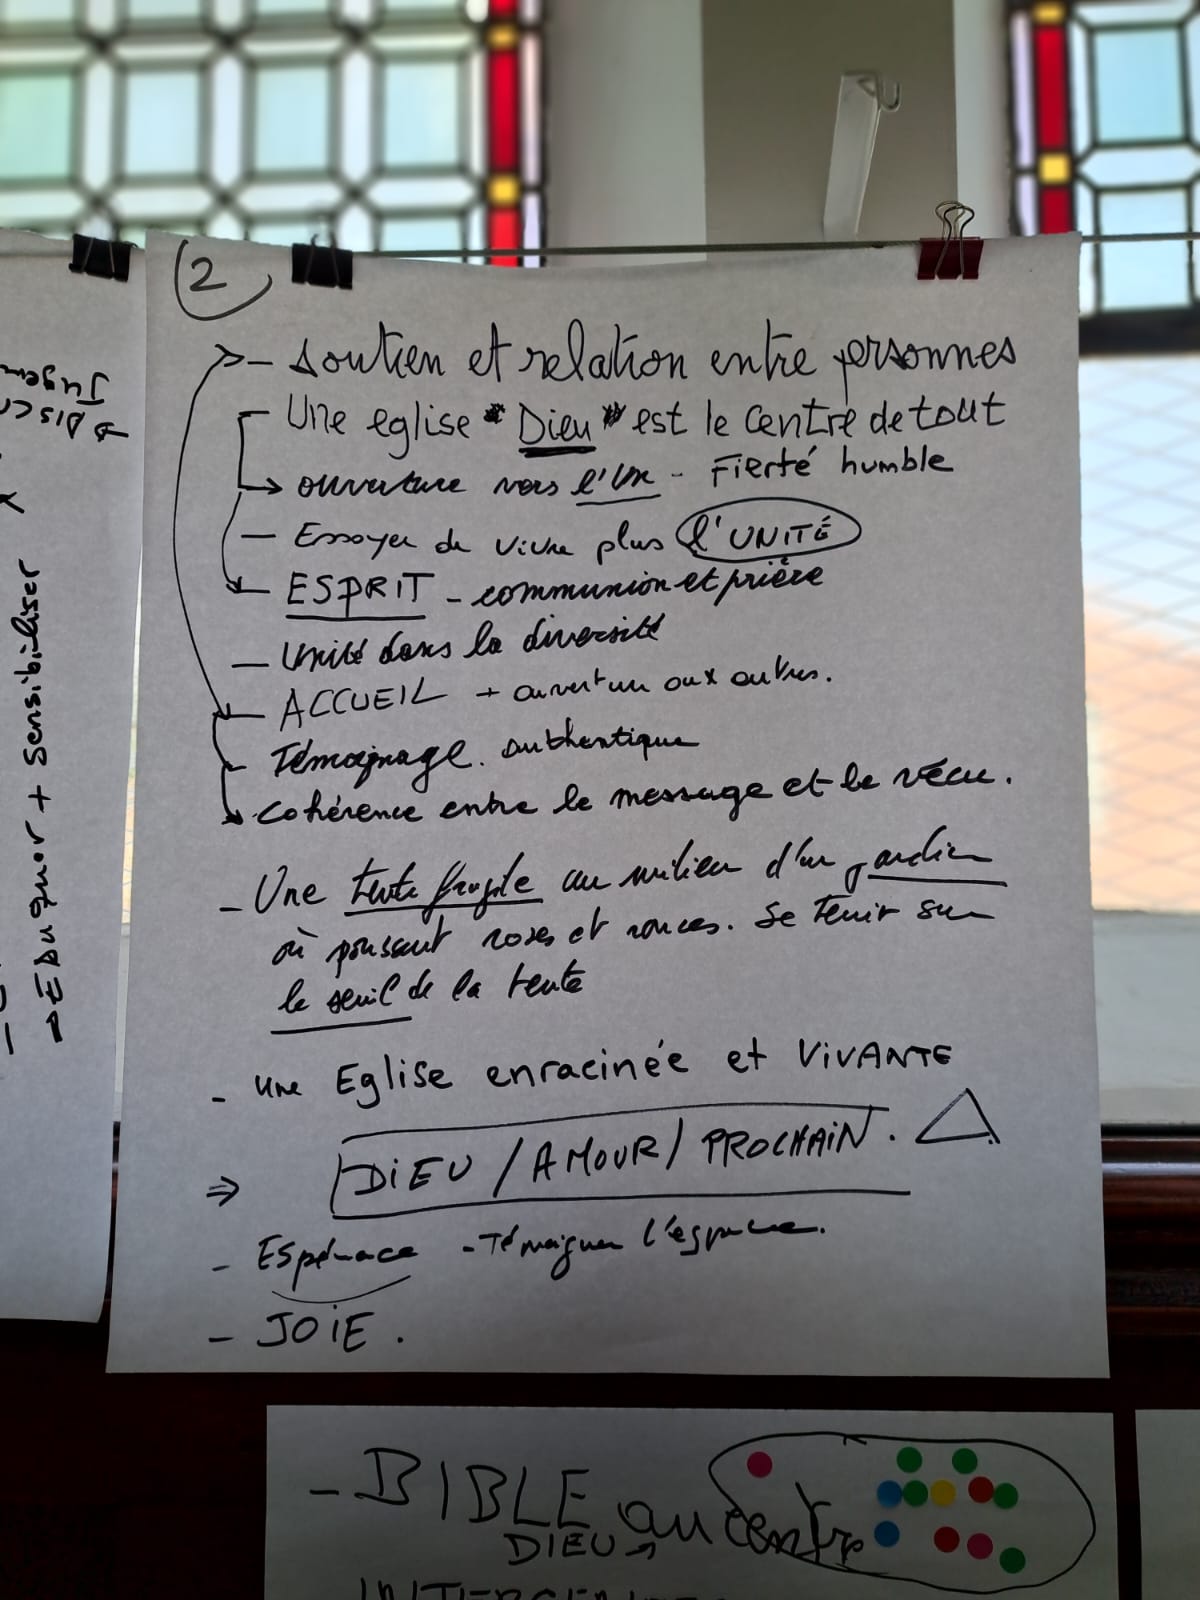 2
- soutien et relation entre personnes
Une eglise "Dieu" est le centre de tout
ouverture vers l'Un - Fierté humble
- Essayer de vivre plus l'UNITÉ
- ESPRIT - communion et prière
- Unité dans la diversité
- ACCUEIL + ouverture aux autres.
- Témoignage. authentique
cohérence entre le message et le vécu.
- Une tente fragile au milieu d'un jardin
où poussent roses et ronces. Se Tenir sur
le seuil de la tente
- une Eglise enracinée et ViVANTE
⇒ DiEU / AMOUR / PROCHAiN. △
- Espérance - Témoigner l'espérance.
- JOiE.
- BIBLE au centre
DIEU
→ EDUQUER + Sensibiliser
→ DISC
Jugem